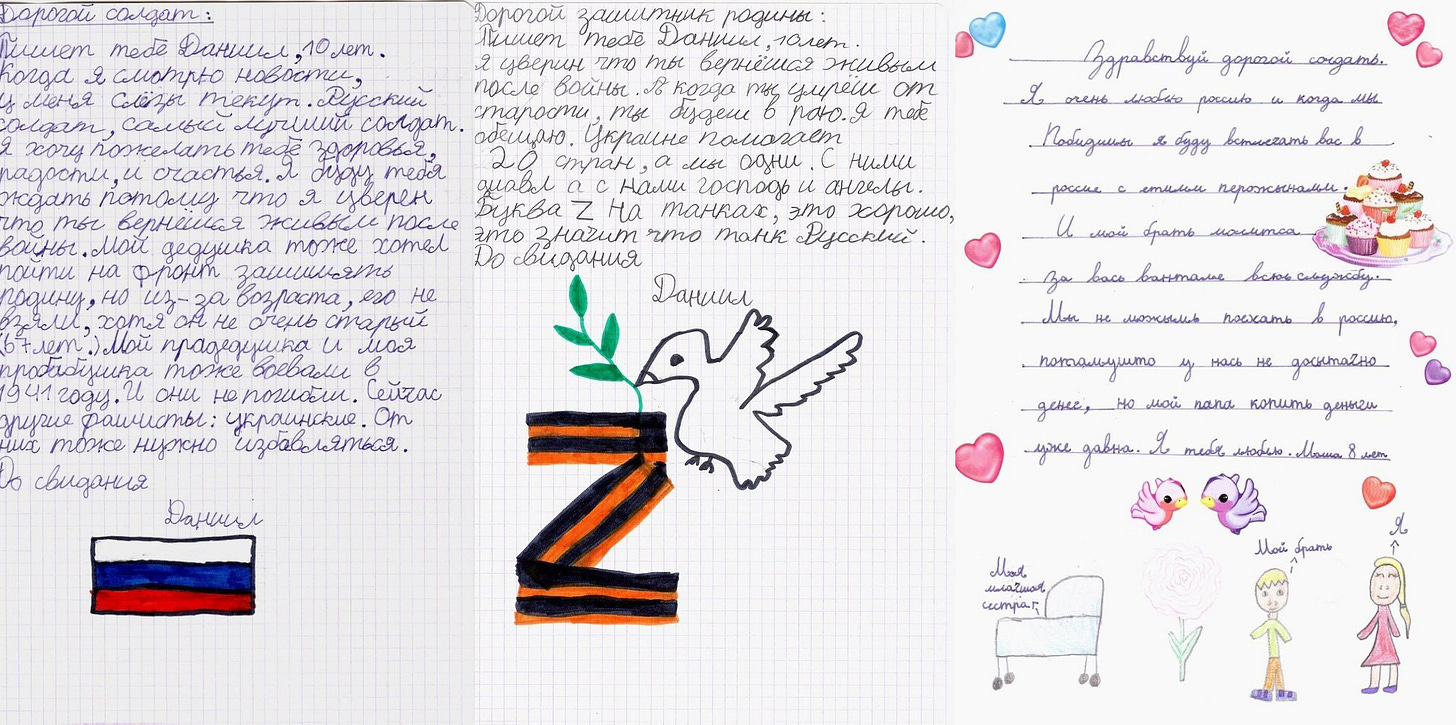 Дорогой солдат:
Пишет тебе Даниил, 10 лет.
Когда я смотрю новости,
у меня слёзы текут. Русский
солдат, самый лучший солдат.
Я хочу пожелать тебе здоровья,
радости, и счастья. Я буду тебя
ждать потому что я уверен
что ты вернёшся живым после
войны. Мой дедушка тоже хотел
пойти на фронт зашишять
родину, но из-за возраста, его не
взяли, хотя он не очень старый
(67 лет.) Мой прадедушка и моя
пробабушка тоже воевали в
1941 году. И они не погибли. Сейчас
другие фашисты: украинские. От
них тоже нужно избавляться.
До свидания
Даниил
Дорогой зашитник родины:
Пишет тебе Даниил, 10 лет.
Я уверин что ты вернёшся живым
после войны. А когда ты умрёш от
старости, ты будеш в раю. Я тебе
обещаю. Украине помогает
20 стран, а мы одни. С ними
диавл а с нами господь и ангелы.
Буква Z на танках, это хорошо,
это значит что танк Русский.
До свидания
Даниил
Z
Здравствуй дорогой солдать.
Я очень люблю россию и когда мы
Победимы я буду встлечать вас в
россие с етими перожынами.
И мой брать молитса
за вась вантале всю службу.
Мы не можымь поехать в россию,
пожалушто у нась не доситачно
денег, но мой папа копить деньги
уже давна. Я тебя люблю. Маша 8 лет
Моя
млачшая
сестра
Мой брать
Я